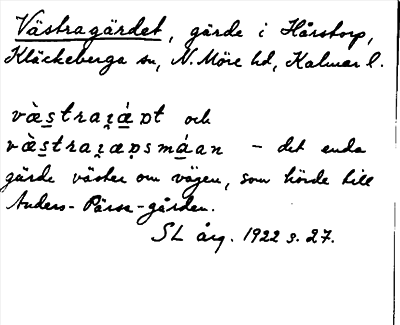 Västragärdet, gärde i Hårstorp,
Kläckeberga sn, N. Möre hd, Kalmar l.
væ̀s̲traʓǽ̲ɒt och
væ̀s̲traʓæɒsmá̲an – det enda
gärde väster om vägen, som hörde till
Anders-Pärsa-gården.
SL årg. 1922 s. 27.